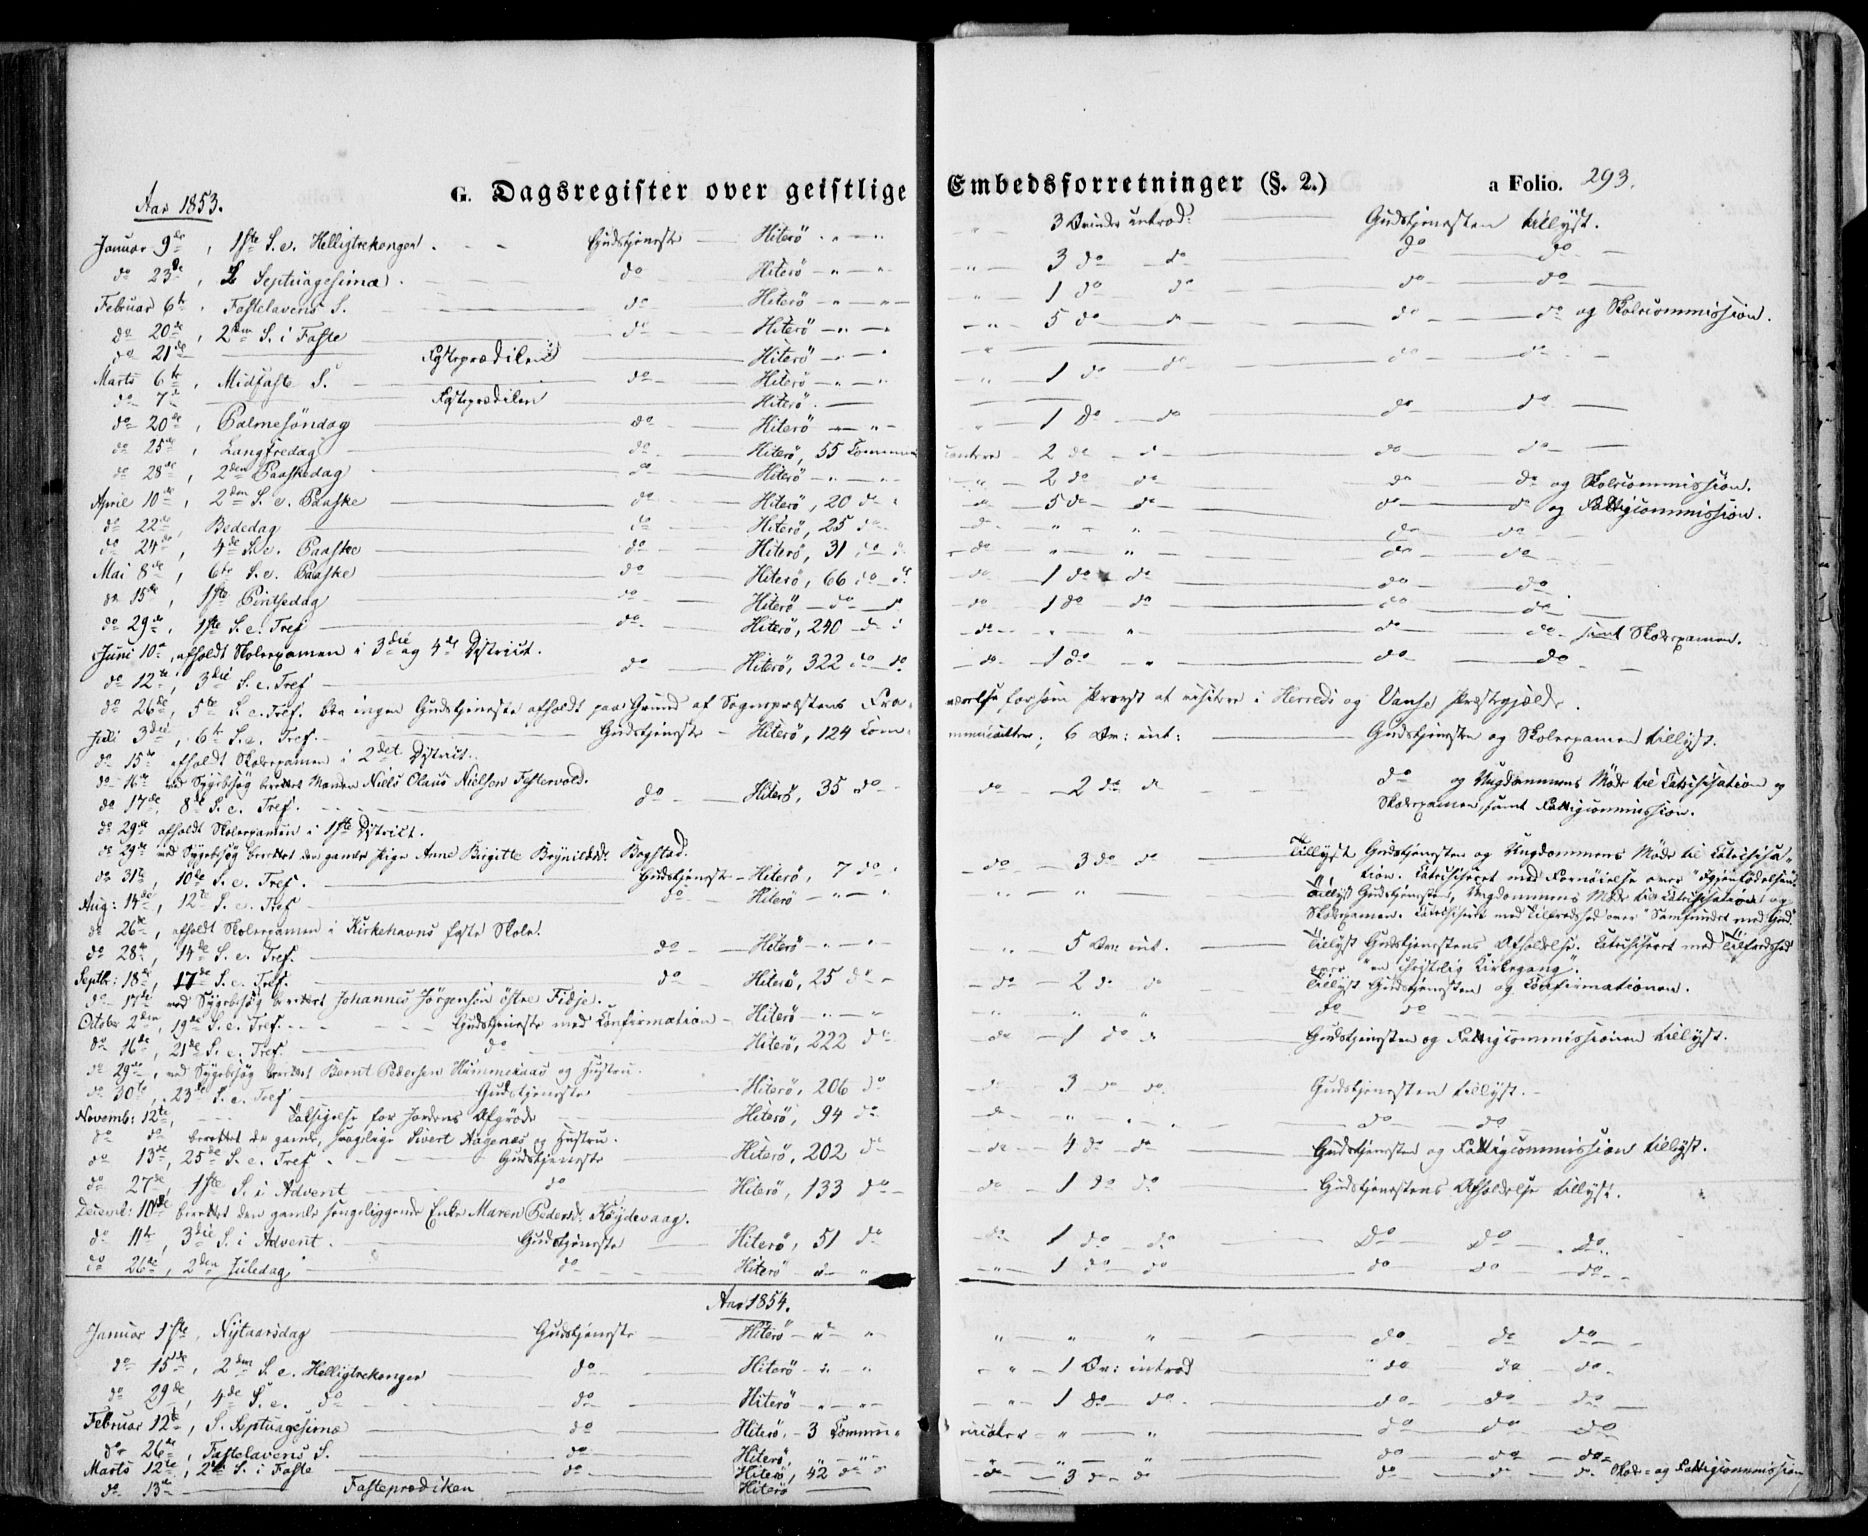 G. Dagsregister over geistlige Embedsforretninger (§. 2.) a Folio. 293.
Aar 1853.
Januar 9de, 1ste S. e. Helligtrekonger. Gudstjeneste Hiterö 3 Qvinder introd: Gudstjenesten tillyst.
do 23de, S. Septuagesima. do Hiterö 3 do do do do
Februar 6te Fastelavens S. do Hiterö 1 do do do do
do 20de, 2den S. i Faste do Hiterö 5 do do do do og Skolecommission.
do 21de Fasteprædiken Hiterö
Marts 6te, Midfaste S. do Hiterö 1 do do do do
do 7de Fasteprædiken Hiterö
do 20de, Palmesöndag do Hiterö 1 do do do do
do 25de, Langfredag do Hiterö, 55 Communicanter 2 do do do do
do 28de, 2den Paaskedag do Hiterö 2 do do do do og Skolecommission.
April 10de, 2den S. e. Paaske do Hiterö, 20 do do 5 do do do do og Fattigcommission.
do 22de, Bededag do Hiterö, 25 do do " " do do
do 24de, 4de S. e. Paaske do Hiterö, 31 do do " " do do
Mai 8de, 6te S. e. Paaske do Hiterö, 66 do do 1 do do do do
do 15de, 1ste Pintsedag do Hiterö do do 1 do do do do
do 29de, 1ste S. e. Tref do Hiterö, 240 do do " " do do samt Skoleexamen.
Juni 10de, afholdt Skoleexamen i 3die og 4de District.
do 12te, 3die S. e. Tref do Hiterö, 322 do do 1 do " do do
do 26de, 5te S. e. Tref. blev ingen Gudstjeneste afholdt paa Grund af Sognepræstens Fraværelse, for som Provst at visitere i Herreds og Vanse Præstegjælde.
Juli 3die, 6te S. e. Tref. Gudstjeneste Hiterö, 124 Communicanter; 6 Qv: int: Gudstjenesten og Skoleexamen tillyst.
do 15de afholdt Skoleexamen i 2det District.
do 16de ved Sygebesøg berettet Manden Niels Olaus Nielsen Festervold.
do 17de, 8de S. e. Tref. do Hiterö, 35 do do 2 do do do og Ungdommens Møde til Catechisation og
Skoleexamen, samt Fattigcommission.
do 29de afholdt Skoleexamen i 1ste District.
do 29de ved Sygebesøg berettet den gamle Pige Anne Birgitte Brynildsd: Bogstad.
do 31te, 10de S. e. Tref. Gudstjeneste Hiterö, 7 do do 3 do do Tillyst Gudstjenesten og Ungdommens Møde til Catechisation. Catechiseret med Fornöielse over "Igjenfödelsen".
Aug: 14de, 12te S. e. Tref do Hiterö " " Tillyst Gudstjenesten, Ungdommens Møde til Catechisation og
Skoleexamen. Catechiseret med Tilfredshed over "Samfundet med Gud".
do 26de, afholdt Skoleexamen i Kirkehavns faste Skole.
do 28de, 14de S. e. Tref. do Hiterö 5 Qv: int. Tillyst Gudstjenestens Afholdelse. Catechiseret med Tilfredshed
over "en christelig Kirkegang".
Septbr: 18de, 17de S. e. Tref. do Hiterö, 25 do do 2 do do Tillyst Gudstjenesten og Confirmationen.
do 17de ved Sygebesøg berettet Johannes Jörgensen östre Fidje.
October 2den, 19de S. e. Tref. Gudstjeneste med Confirmation Hiterö " " " do do
do 16de, 21de S. e. Tref. do Hiterö, 222 do do 1 do do Gudstjenesten og Fattigcommissionen tillyst.
do 29de, ved Sygebesøg berettet Bernt Pedersen Hummeraas og Hustru.
do 30te, 23de S. e. Tref Gudstjeneste Hiterö, 206 do do 3 do do Gudstjenesten tillyst.
Novemb: 12te, Taksigelse for Jordens Afgröde Hiterö, 94 do do " " do do
do do berettet de gamle, svagelige Sivert Aagenæs og Hustru.
do 13de, 25de S. e. Tref. Gudstjeneste Hiterö, 202 do do 4 do do Gudstjenesten og Fattigcommission tillyst.
do 27de, 1ste S. i Advent do Hiterö, 133 do do 1 do do Gudstjenestens Afholdelse tillyst.
Decemb: 10de berettet den gamle sengeliggende Enke Maren Pedersd: Röjdevaag.
do 11te, 3die S. i Advent. Gudstjeneste Hiterö, 51 do do 1 do do Do Do Do
do 26de, 2den Juledag do Hiterö " 1 do do do do do
Aar 1854.
Januar 1ste, Nytaarsdag Gudstjeneste Hiterö " " " do do do
do 15de, 2den S. e. Helligtrekonger do Hiterö " 1 Qv: introd do do do
do 29de, 4de S. e. do do Hiterö " 1 do do do do do
Februar 12te, S. Septuagesima do Hiterö, 3 Communicanter " " do do do
do 26de, Fastelavens S. do Hiterö " " do do do
Marts 12te, 2den S. i Faste do Hiterö, 42 do do 3 do do do do do Skole- og Fattigcommission
do 13de Fasteprædiken Hiterö